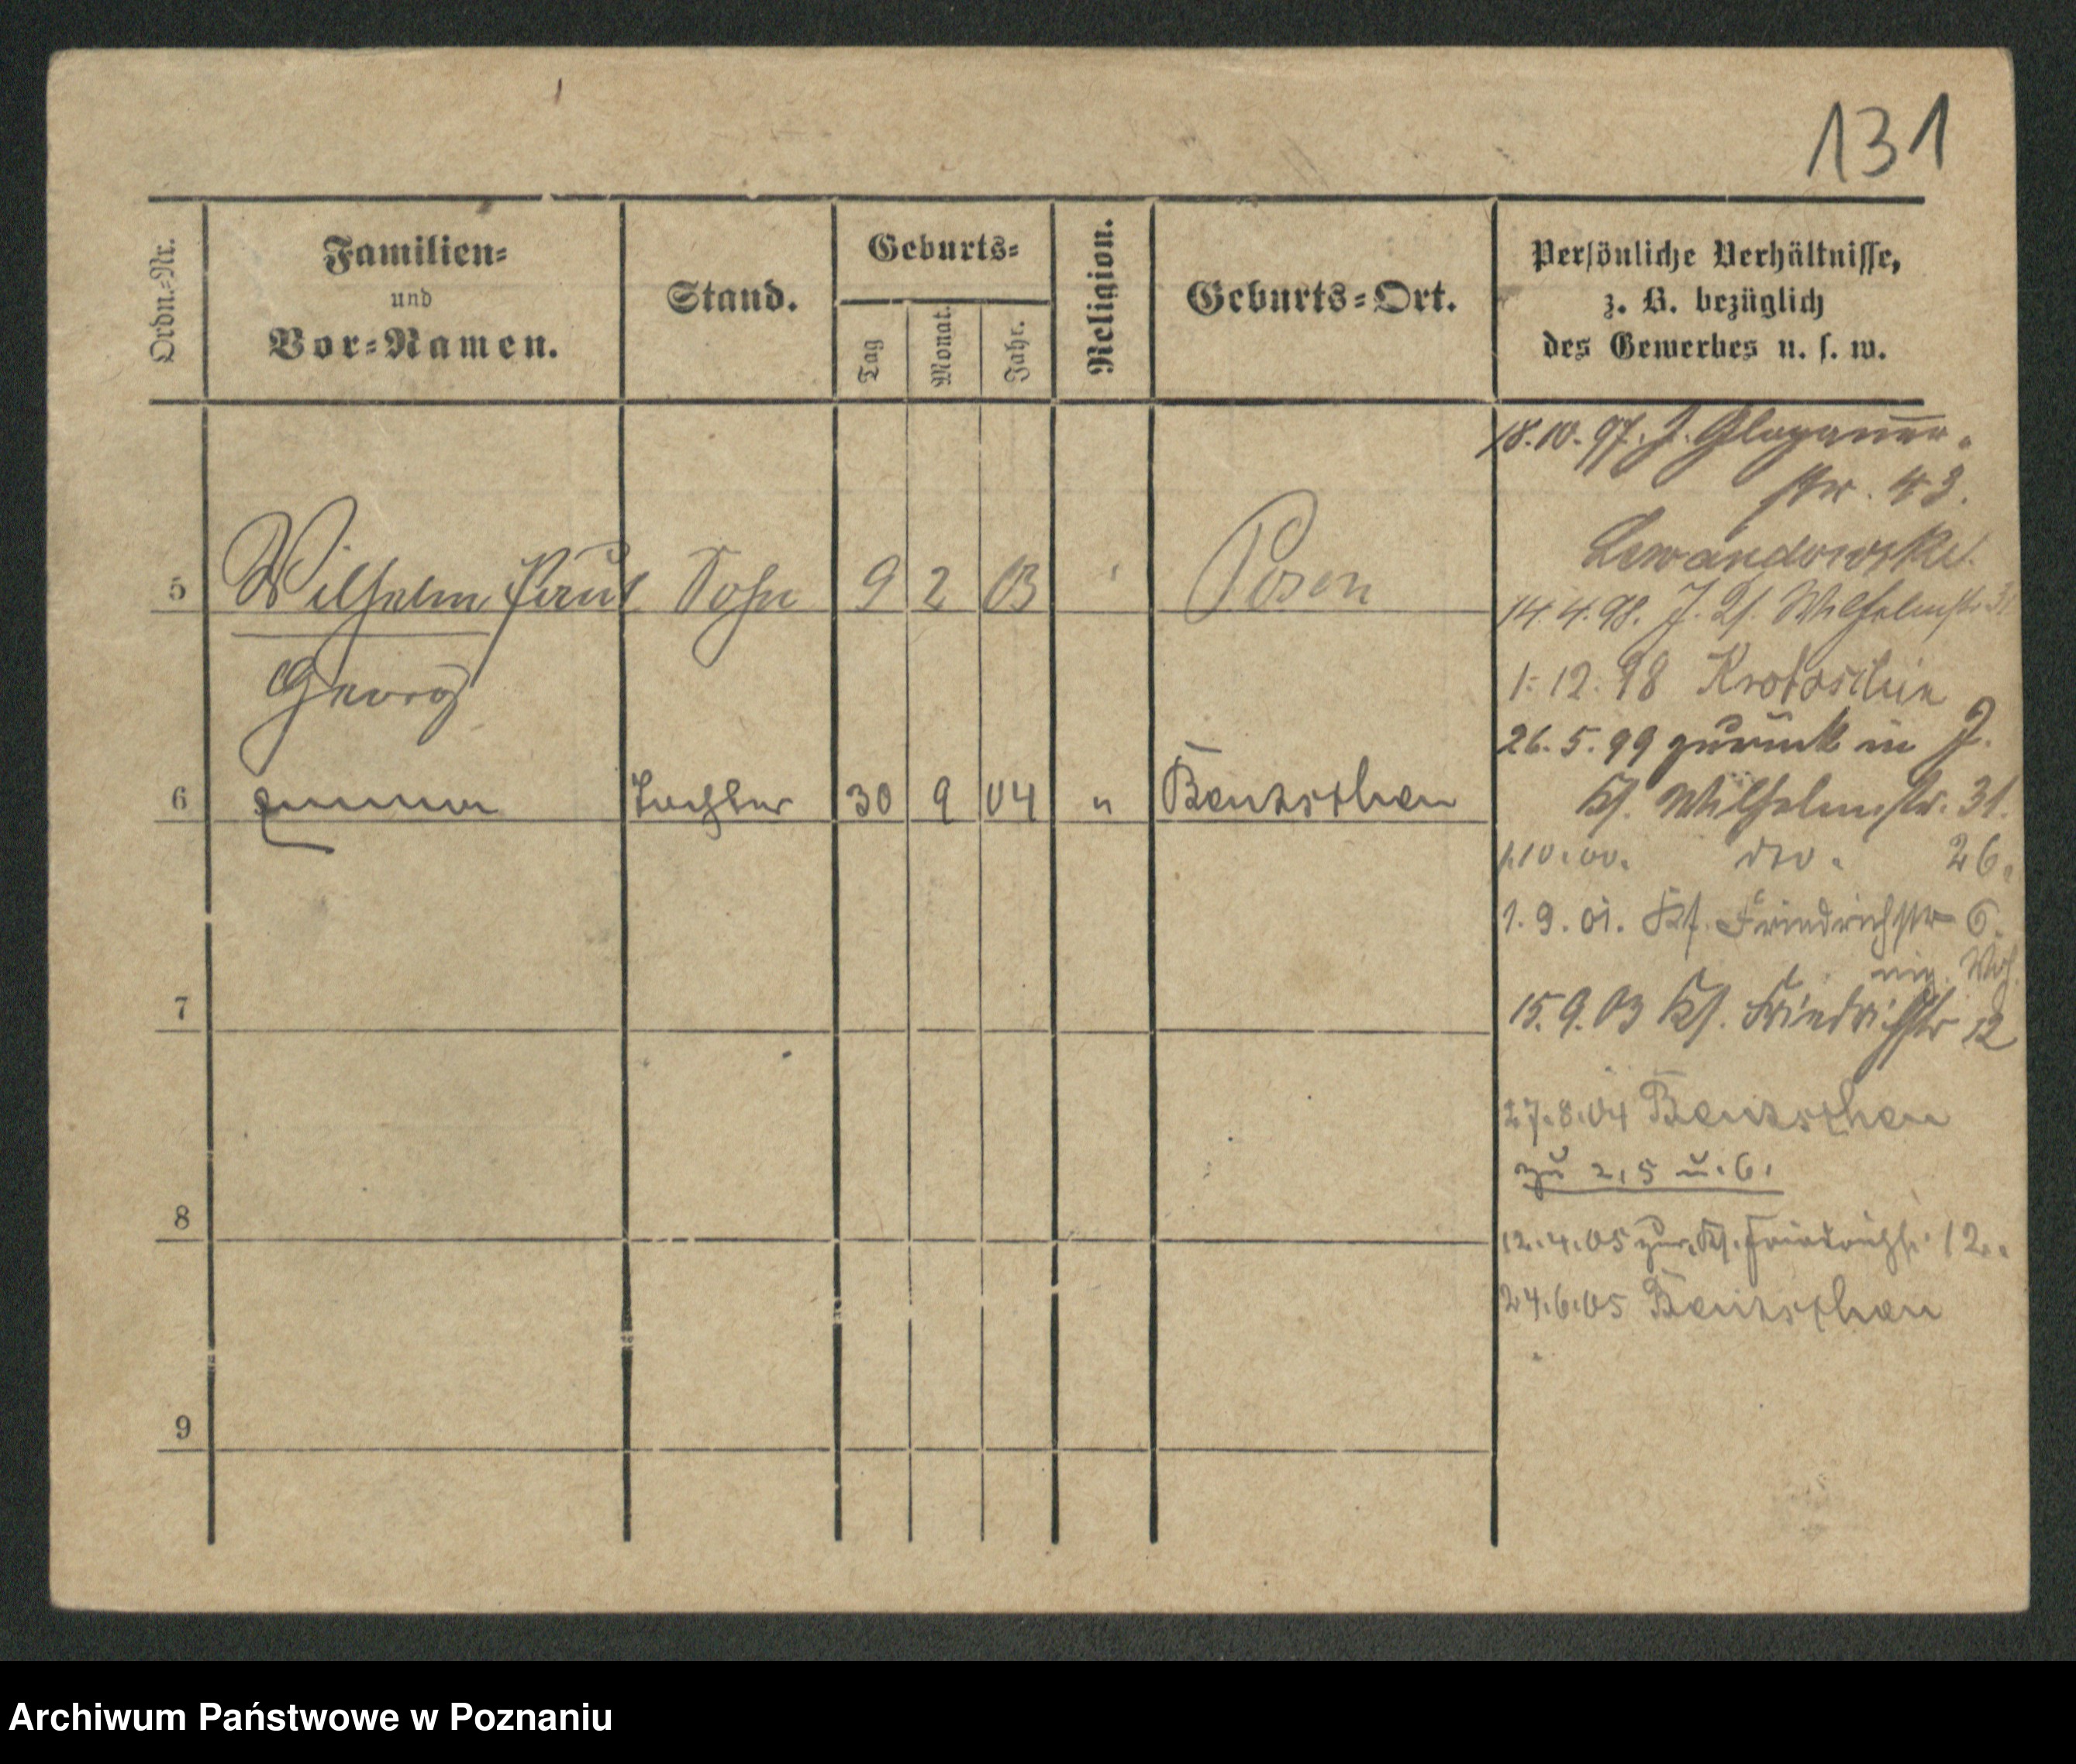 131
Ordn.-Nr.
Familien-
und
Vor-Namen.
Stand.
Geburts-
Tag
Monat.
Jahr.
Religion.
Geburts-Ort.
Persönliche Verhältnisse,
z. B. bezüglich
des Gewerbes u. s. w.
18.10.97. J. Glogauer-
str. 43.
Lewandowski.
5 Wilhelm Paul Sohn 9 2 03 Posen
Georg
14.4.98. J. Wilhelmstr. 31
1.12.98 Krotoschin
26.5.99 zurück in J.
Wilhelmstr. 31.
6 Emma Tochter 30 9 04 " Bentschen
1.10.00. do. 26.
1.9.01. Friedrichstr 6.
7
15.9.03 Friedrichstr 12
27.8.04 Bentschen
zu 2, 5 u. 6.
8
12.4.05 zur. Friedrichstr. 12.
24.6.05 Bentschen
9
Archiwum Państwowe w Poznaniu